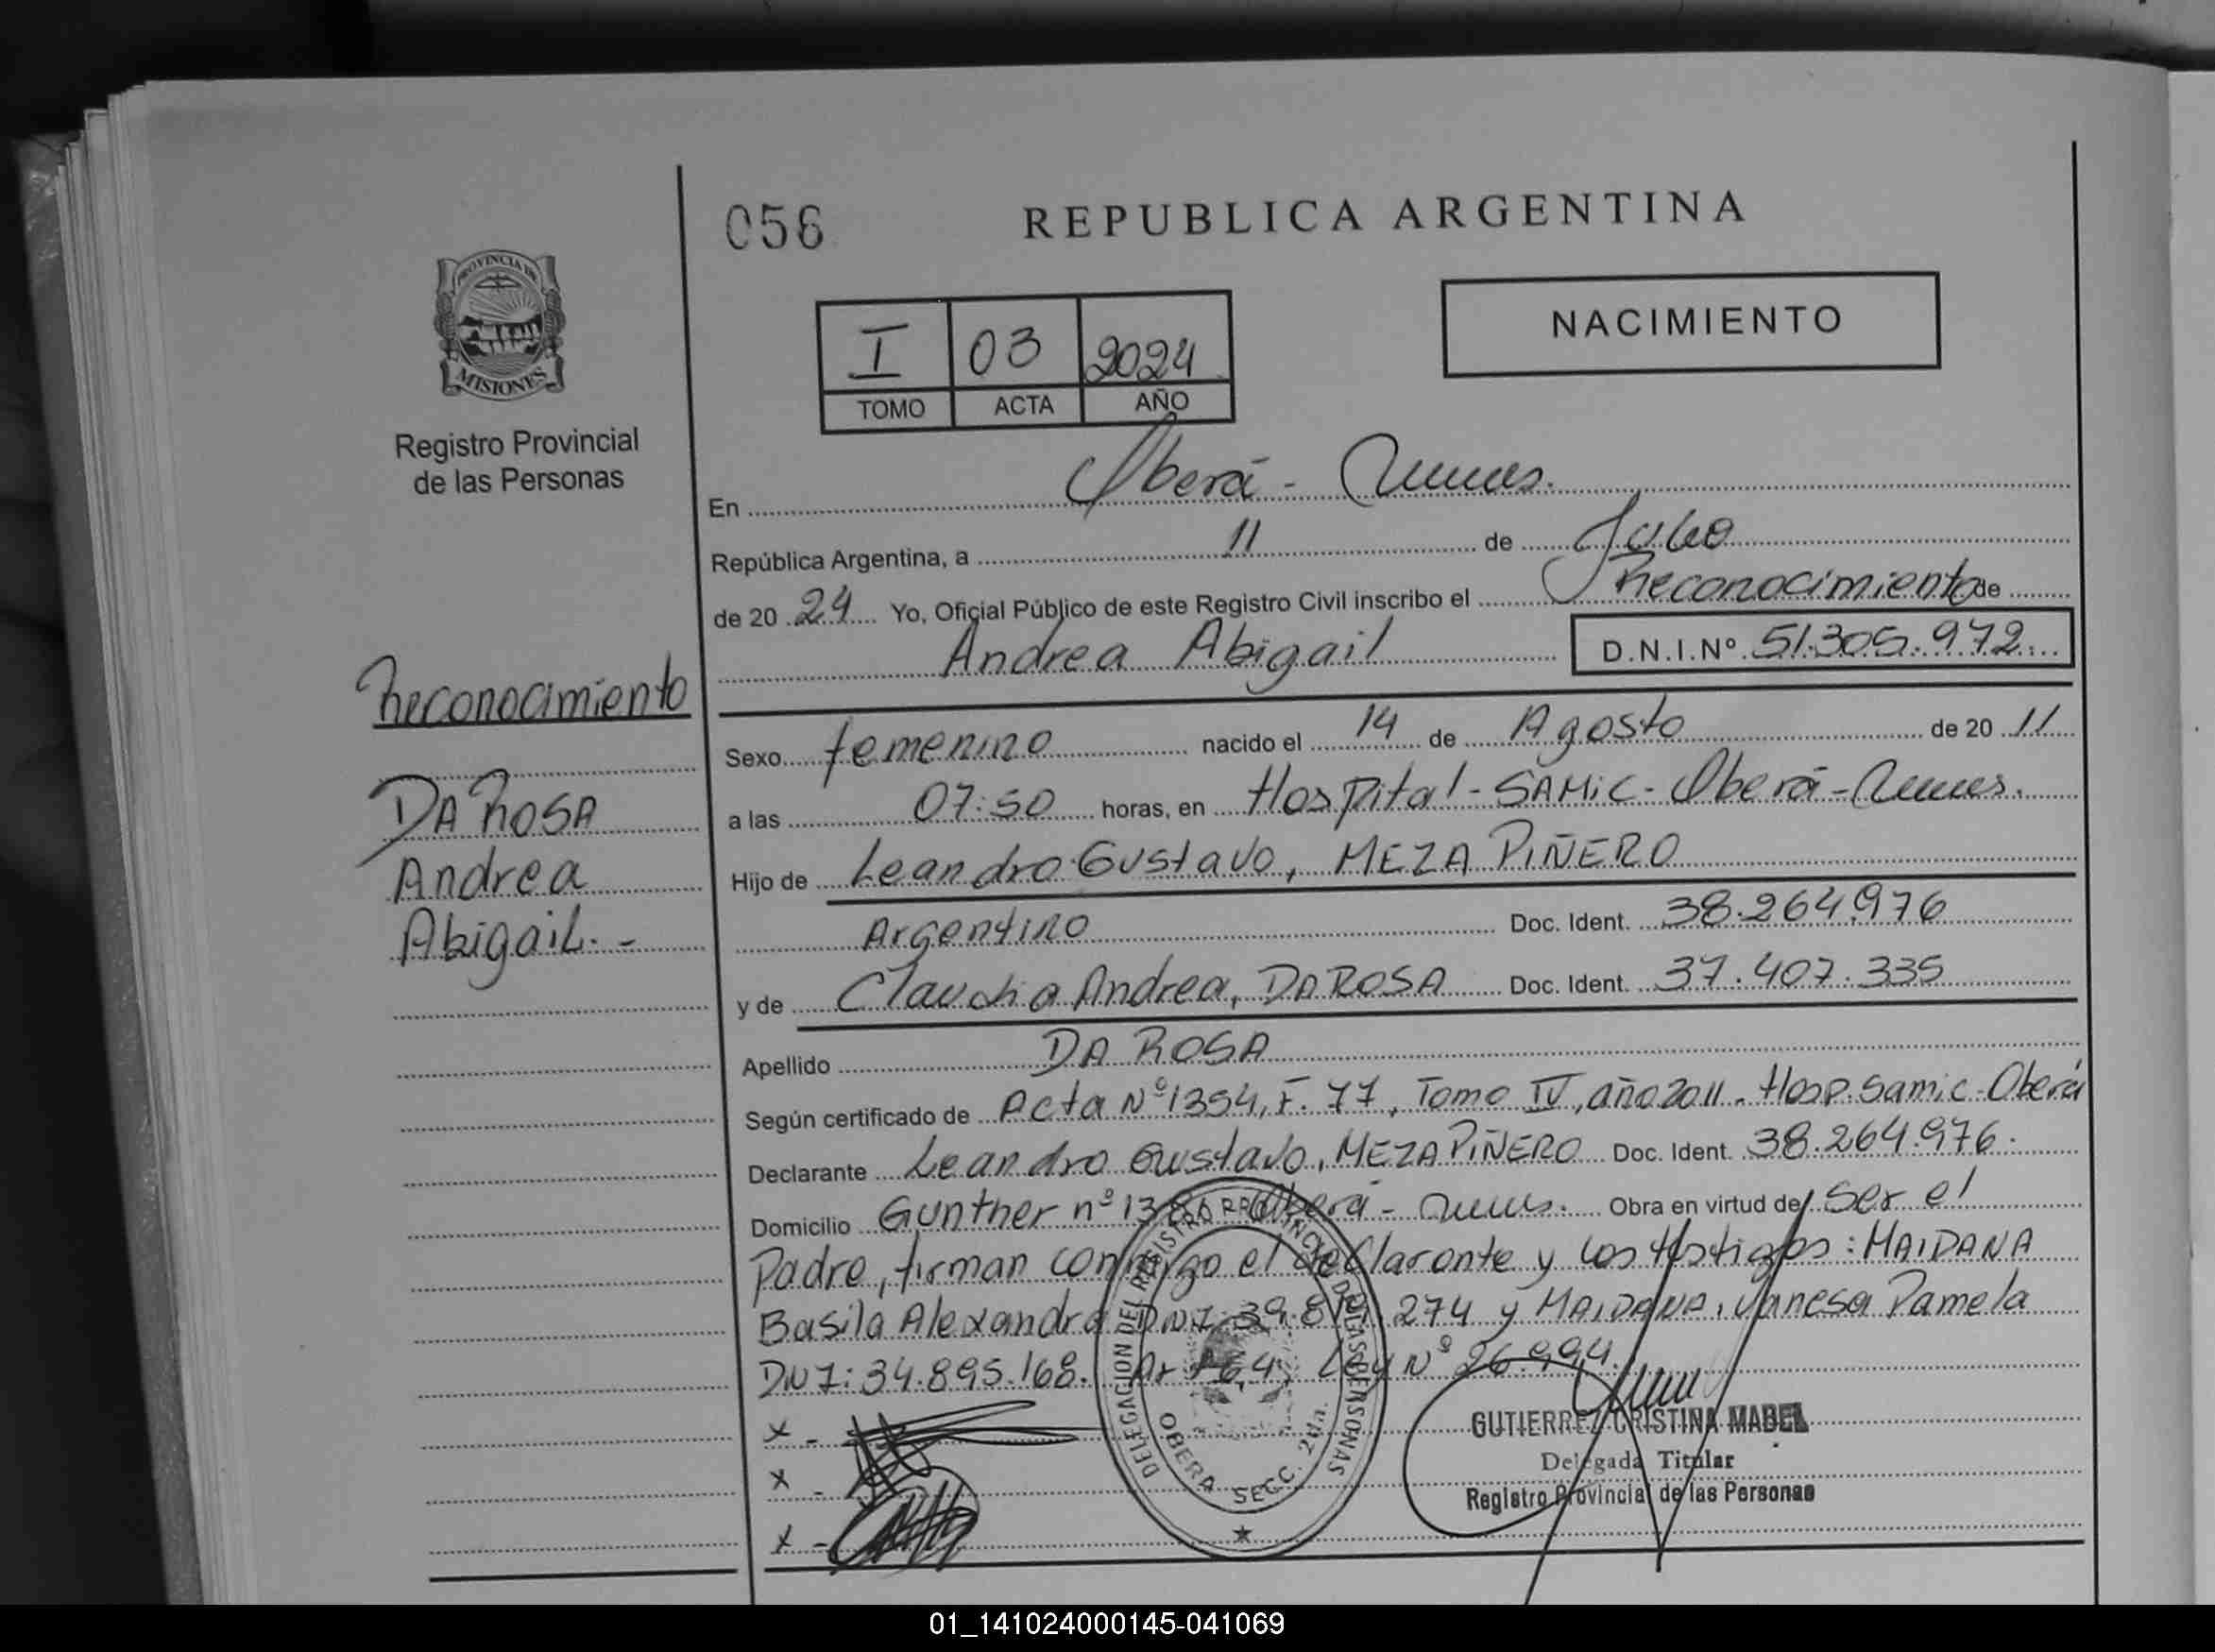 056
REPUBLICA ARGENTINA
PROVINCIA DE
MISIONES
Registro Provincial
de las Personas
I 03 2024
TOMO ACTA AÑO
NACIMIENTO
En Oberá -
República Argentina, a 11 de Julio
de 20 24 Yo, Oficial Público de este Registro Civil inscribo el Reconocimiento de
Andrea Abigail D.N.I.Nº 51.305.972
Reconocimiento
DA ROSA
Andrea
Abigail.-
Sexo femenino nacido el 14 de Agosto de 20 11
a las 07:50 horas, en Hospital-SAMIC-Oberá-
Hijo de Leandro Gustavo, MEZA PIÑERO
Argentino Doc. Ident. 38.264.976
y de Claudia Andrea, DA ROSA Doc. Ident. 37.407.335
Apellido DA ROSA
Según certificado de Acta Nº1354, F. 77, Tomo IV, año 2011. Hosp. Samic-Oberá
Declarante Leandro Gustavo, MEZA PIÑERO Doc. Ident. 38.264.976.
Domicilio Gunther nº Oberá - Obra en virtud de Ser el
Padre, firman conmigo el declarante y los testigos: MAIDANA
Basila Alexandra DNI: 274 y MAIDANA, Vanesa Pamela
DNI: 34.895.168. Art 64, Ley Nº 26.994.
x -
x -
x -
DELEGACION DEL REGISTRO PROVINCIAL DE LAS PERSONAS
OBERA SECC. 2da.
GUTIERREZ CRISTINA MABEL
Delegada Titular
Registro Provincial de las Personas
01_141024000145-041069